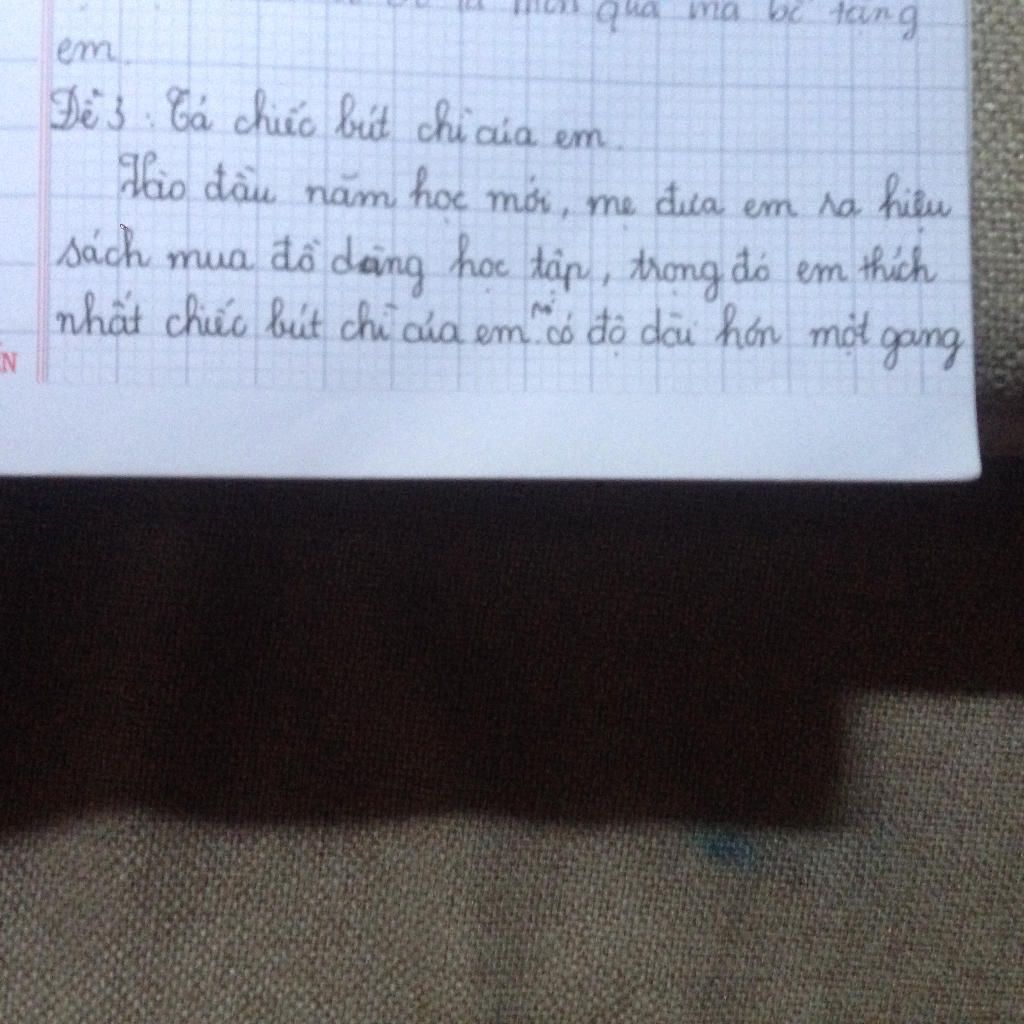 món quà mà bố tặng
em.
Đề 3: Tả chiếc bút chì của em.
Vào đầu năm học mới, mẹ đưa em ra hiệu
sách mua đồ dùng học tập, trong đó em thích
nhất chiếc bút chì của em. nó có độ dài hơn một gang